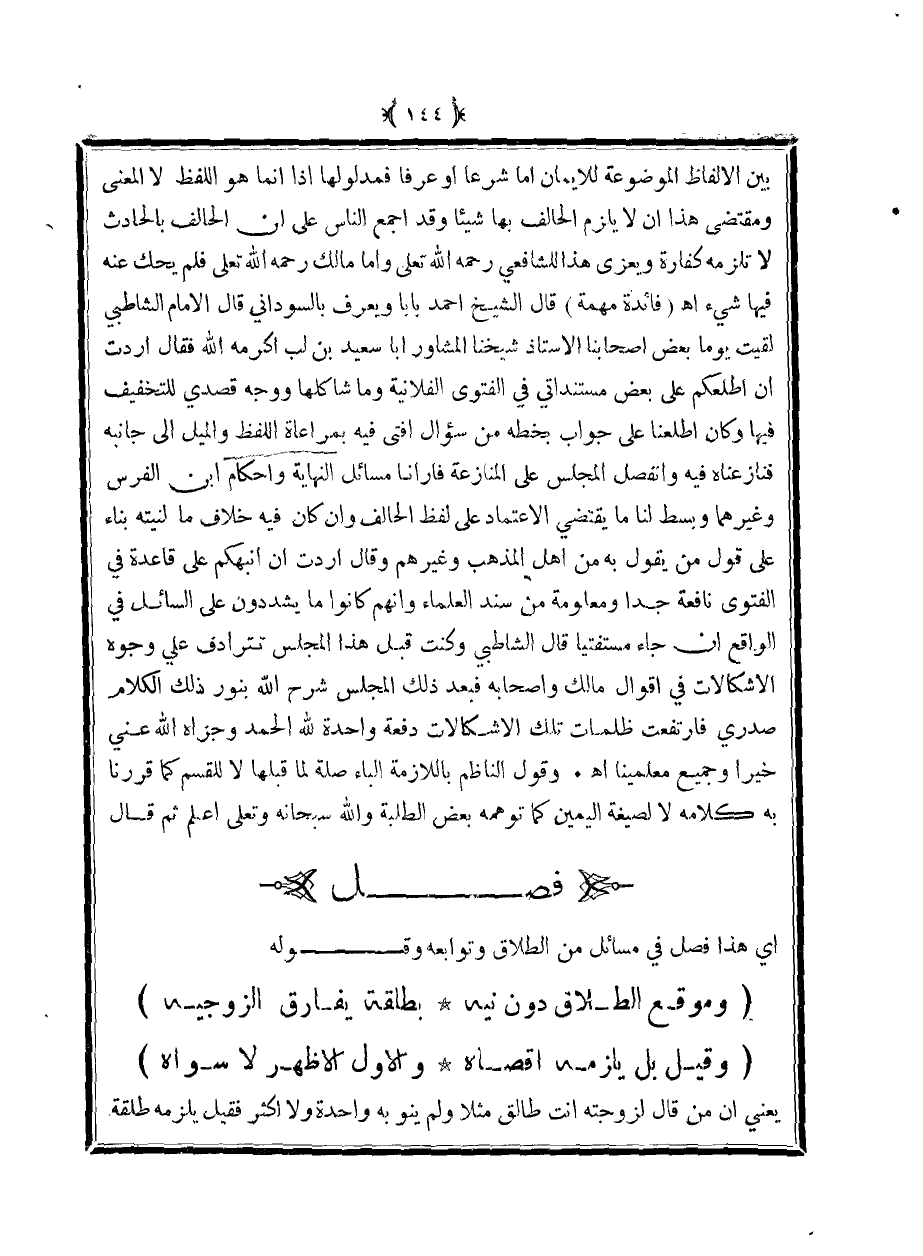 ﴿ ١٤٤ ﴾
بين الالفاظ الموضوعة للايمان اما شرعا او عرفا فمدلولها اذا انما هو اللفظ لا المعنى
ومقتضى هذا ان لا يلزم الحالف بها شيئا وقد اجمع الناس على ان الحالف بالحادث
لا تلزمه كفارة ويعزى هذا للشافعي رحمه الله تعلى واما مالك رحمه الله تعلى فلم يحك عنه
فيها شيء اه ( فائدة مهمة ) قال الشيخ احمد بابا ويعرف بالسوداني قال الامام الشاطبي
لقيت يوما بعض اصحابنا الاستاذ شيخنا المشاور ابا سعيد بن لب اكرمه الله فقال اردت
ان اطلعكم على بعض مستنداتي في الفتوى الفلانية وما شاكلها ووجه قصدي للتخفيف
فيها وكان اطلعنا على جواب بخطه من سؤال افتى فيه بمراعاة اللفظ والميل الى جانبه
فنازعناه فيه وانفصل المجلس على المنازعة فارانا مسائل النهاية واحكام ابن الفرس
وغيرهما وبسط لنا ما يقتضي الاعتماد على لفظ الحالف وان كان فيه خلاف ما لنيته بناء
على قول من يقول به من اهل المذهب وغيرهم وقال اردت ان انبهكم على قاعدة في
الفتوى نافعة جدا ومعلومة من سند العلماء وانهم كانوا ما يشددون على السائل في
الواقع ان جاء مستفتيا قال الشاطبي وكنت قبل هذا المجلس تترادف علي وجوه
الاشكالات في اقوال مالك واصحابه فبعد ذلك المجلس شرح الله بنور ذلك الكلام
صدري فارتفعت ظلمات تلك الاشكالات دفعة واحدة لله الحمد وجزاه الله عني
خيرا وجميع معلمينا اه . وقول الناظم باللازمة الباء صلة لما قبلها لا للقسم كما قررنا
به كلامه لا لصيغة اليمين كما توهمه بعض الطلبة والله سبحانه وتعلى اعلم ثم قال
فصل
اي هذا فصل في مسائل من الطلاق وتوابعه وقوله
( وموقع الطلاق دون نيه * بطلقة يفارق الزوجيه )
( وقيل بل يلزمه اقصاه * والاول الاظهر لا سواه )
يعني ان من قال لزوجته انت طالق مثلا ولم ينو به واحدة ولا اكثر فقيل يلزمه طلقة